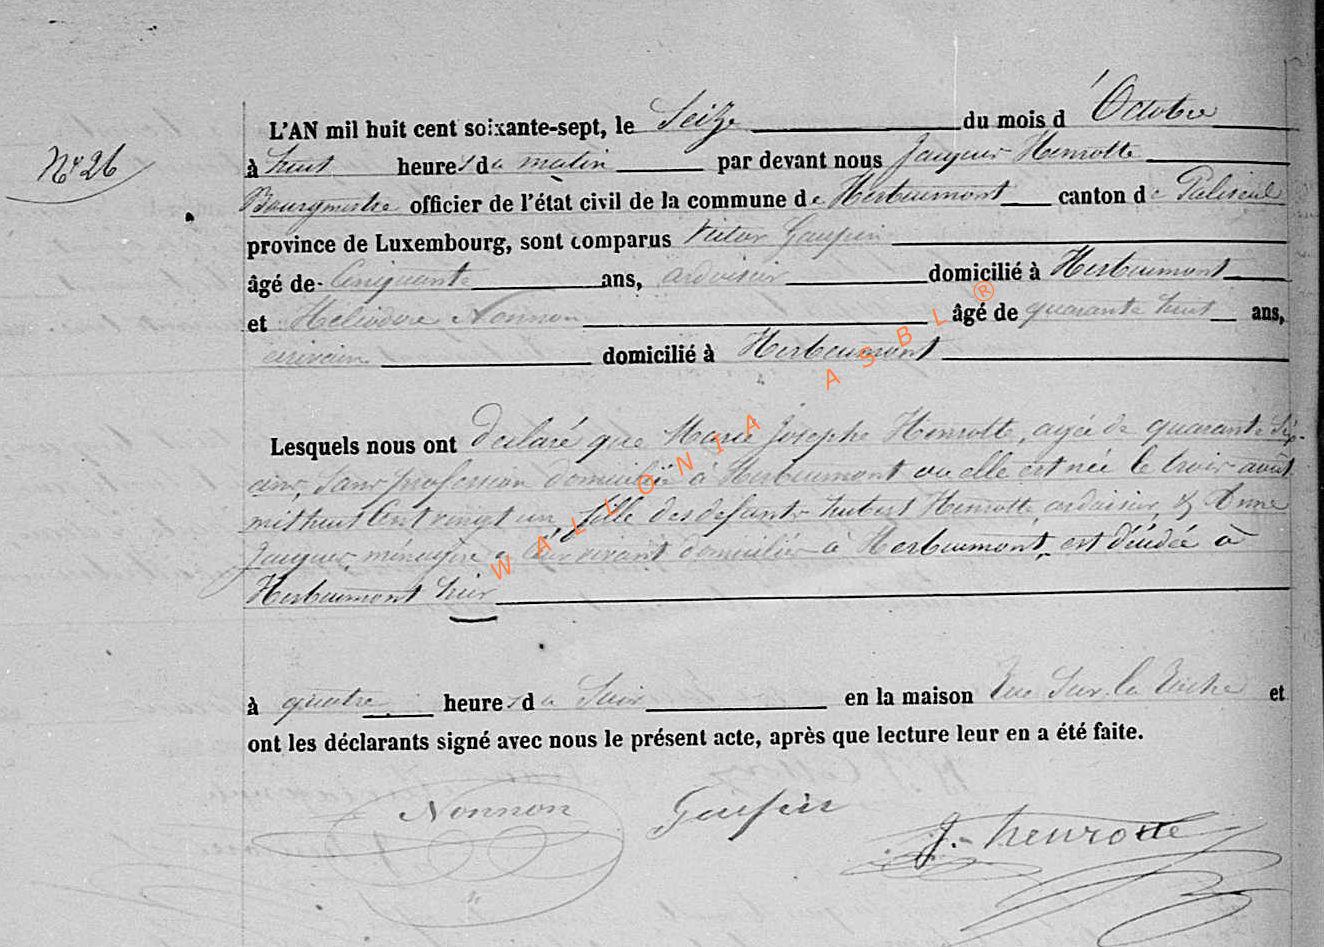 N° 26
L'AN mil huit cent soixante-sept, le Seize du mois d'Octobre
à huit heures du matin par devant nous Jacques Henrotte
Bourgmestre officier de l'état civil de la commune de Herbeumont canton de Paliseul
province de Luxembourg, sont comparus Victor Gaupin
âgé de Cinquante ans, ardoisier domicilié à Herbeumont
et Héliodore Nonnon âgé de quarante huit ans,
écrivain domicilié à Herbeumont
Lesquels nous ont declaré que Marie Josephe Henrotte, agée de quarante Six
ans, Sans profession domiciliée à Herbeumont ou elle est née le trois août
mil huit Cent vingt un, fille des defunts hubert Henrotte, ardoisier, & Anne
Jacques, ménagère en leur vivant domiciliés à Herbeumont, est décédée à
Herbeumont hier
à quatre heures du Soir en la maison Rue Sur la Roche et
ont les déclarants signé avec nous le présent acte, après que lecture leur en a été faite.
Nonnon Gaupin J. henrotte
WALLONIA ASBL ®